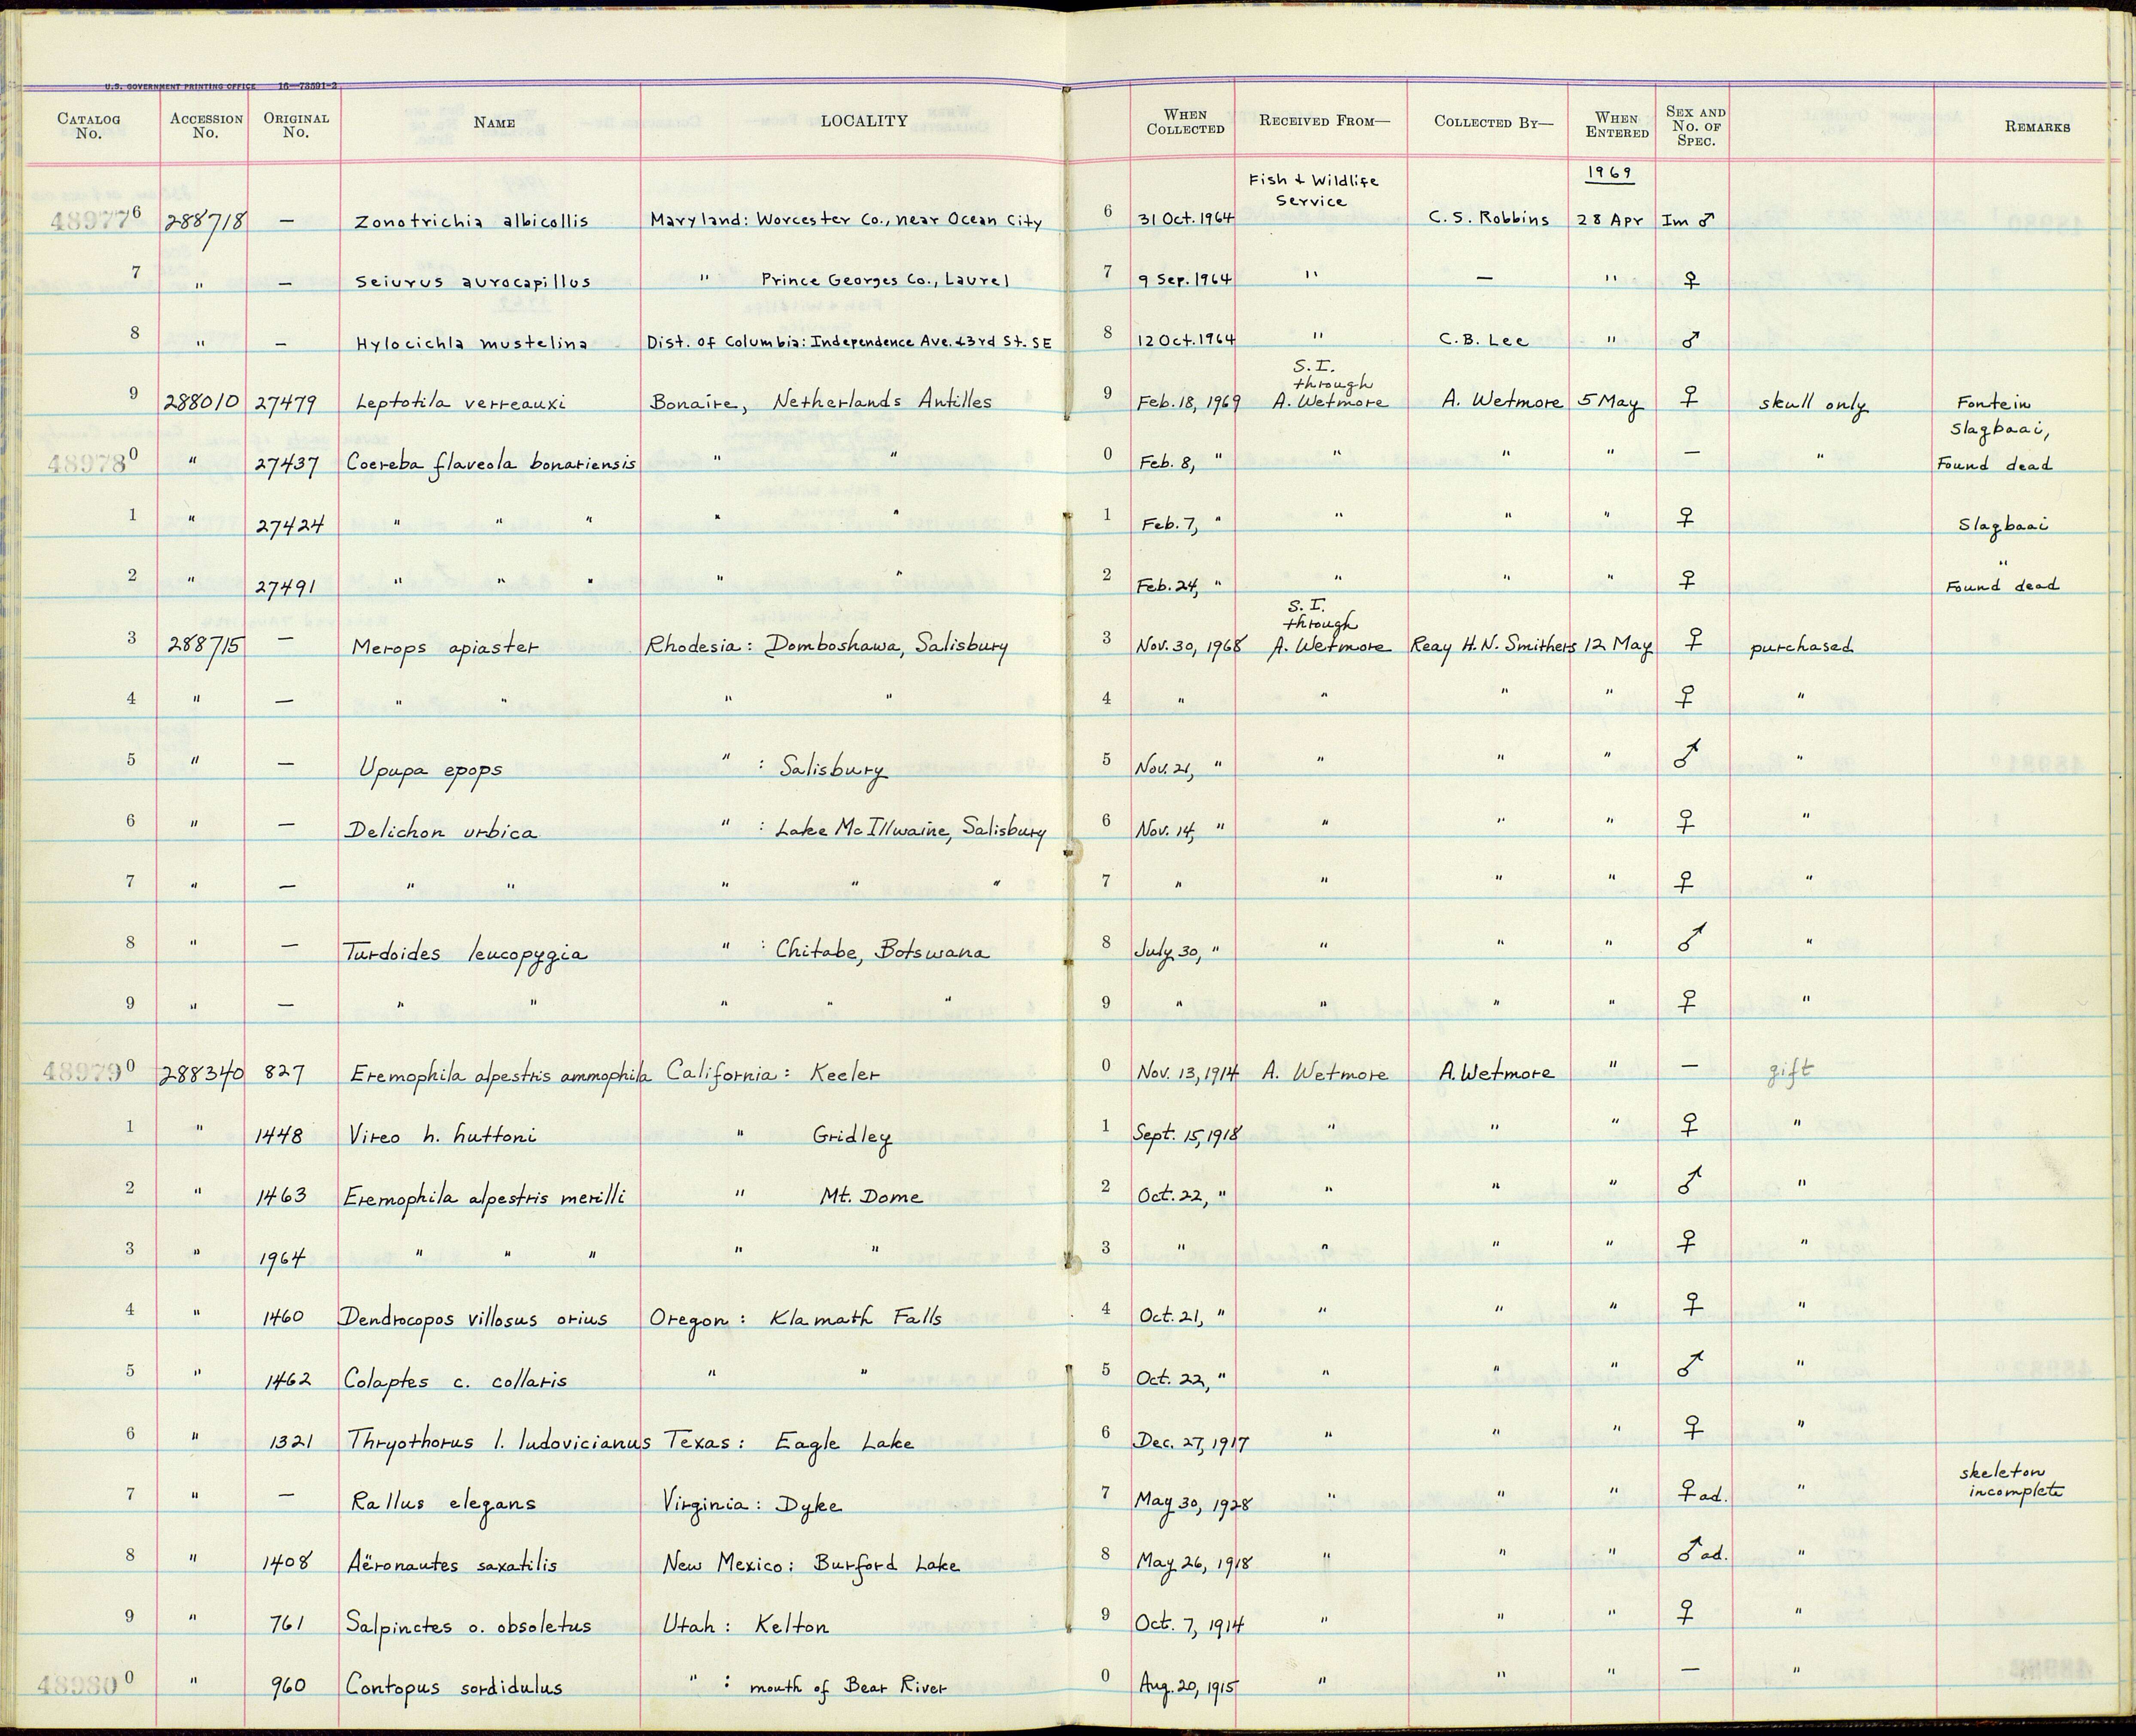 U.S. GOVERNMENT PRINTING OFFICE 16—73591-2
CATALOG No. ACCESSION No. ORIGINAL No. NAME LOCALITY WHEN COLLECTED RECEIVED FROM— COLLECTED BY— WHEN ENTERED SEX AND No. OF SPEC. REMARKS
Fish & Wildlife Service 1969
489776 288718 — Zonotrichia albicollis Maryland: Worcester Co., near Ocean City 6 31 Oct. 1964 C. S. Robbins 28 Apr Im ♂
7 " — Seiurus aurocapillus " Prince Georges Co., Laurel 7 9 Sep. 1964 " — " ♀
8 " — Hylocichla mustelina Dist. of Columbia: Independence Ave. & 3rd St. SE 8 12 Oct. 1964 " C.B. Lee " ♂
9 288010 27479 Leptotila verreauxi Bonaire, Netherlands Antilles 9 Feb. 18, 1969 S.I. through A. Wetmore A. Wetmore 5 May ♀ skull only Fontein
489780 " 27437 Coereba flaveola bonariensis " " 0 Feb. 8, " " " " — " Slagbaai, Found dead
1 " 27424 " " " " " 1 Feb. 7, " " " " ♀ Slagbaai
2 " 27491 " " " " " 2 Feb. 24, " " " " ♀ " Found dead
3 288715 — Merops apiaster Rhodesia: Domboshawa, Salisbury 3 Nov. 30, 1968 S.I. through A. Wetmore Reay H. N. Smithers 12 May ♀ purchased
4 " — " " " " 4 " " " " ♀ "
5 " — Upupa epops " : Salisbury 5 Nov. 21, " " " " ♂ "
6 " — Delichon urbica " : Lake McIllwaine, Salisbury 6 Nov. 14, " " " " ♀ "
7 " — " " " " " 7 " " " " ♀ "
8 " — Turdoides leucopygia " : Chitabe, Botswana 8 July 30, " " " " ♂ "
9 " — " " " " " 9 " " " " ♀ "
489790 288340 827 Eremophila alpestris ammophila California: Keeler 0 Nov. 13, 1914 A. Wetmore A. Wetmore " — gift
1 " 1448 Vireo h. huttoni " Gridley 1 Sept. 15, 1918 " " " ♀ "
2 " 1463 Eremophila alpestris merilli " Mt. Dome 2 Oct. 22, " " " " ♂ "
3 " 1964 " " " " " 3 " " " " ♀ "
4 " 1460 Dendrocopos villosus orius Oregon: Klamath Falls 4 Oct. 21, " " " " ♀ "
5 " 1462 Colaptes c. collaris " " 5 Oct. 22, " " " " ♂ "
6 " 1321 Thryothorus l. ludovicianus Texas: Eagle Lake 6 Dec. 27, 1917 " " " ♀ "
7 " — Rallus elegans Virginia: Dyke 7 May 30, 1928 " " " ♀ ad. " skeleton incomplete
8 " 1408 Aëronautes saxatilis New Mexico: Burford Lake 8 May 26, 1918 " " " ♂ ad. "
9 " 761 Salpinctes o. obsoletus Utah: Kelton 9 Oct. 7, 1914 " " " ♀ "
489800 " 960 Contopus sordidulus " : mouth of Bear River 0 Aug. 20, 1915 " " " — "